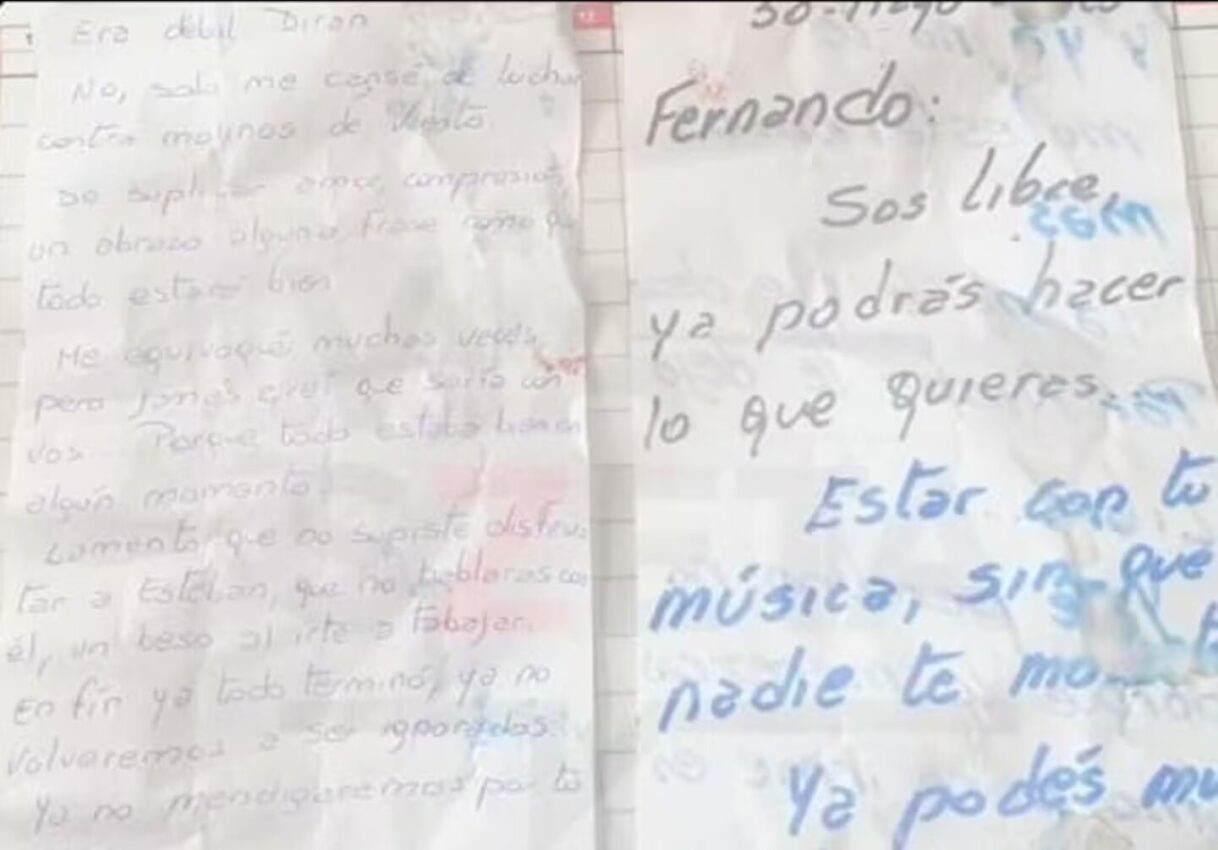 Era débil Diran
No, solo me cansé de lucha
contra molinos de viento
De suplicar amor, comprensión,
un abrazo alguna frase como que
todo estará bien
Me equivoqué muchas veces,
pero jamás creí que sería con
vos. Porque todo estaba bien en
algún momento
Lamento que no supiste disfru
tar a Esteban, que no hablaras con
él, un beso al irte a tabajar.
En fin ya todo terminó, ya no
volveremos a ser ignorados.
Ya no mendigaremos por tu
30-Mayo
Fernando:
Sos libre,
ya podrás hacer
lo que quieras.
Estar con tu
música, sin que
nadie te mo
Ya podés mu